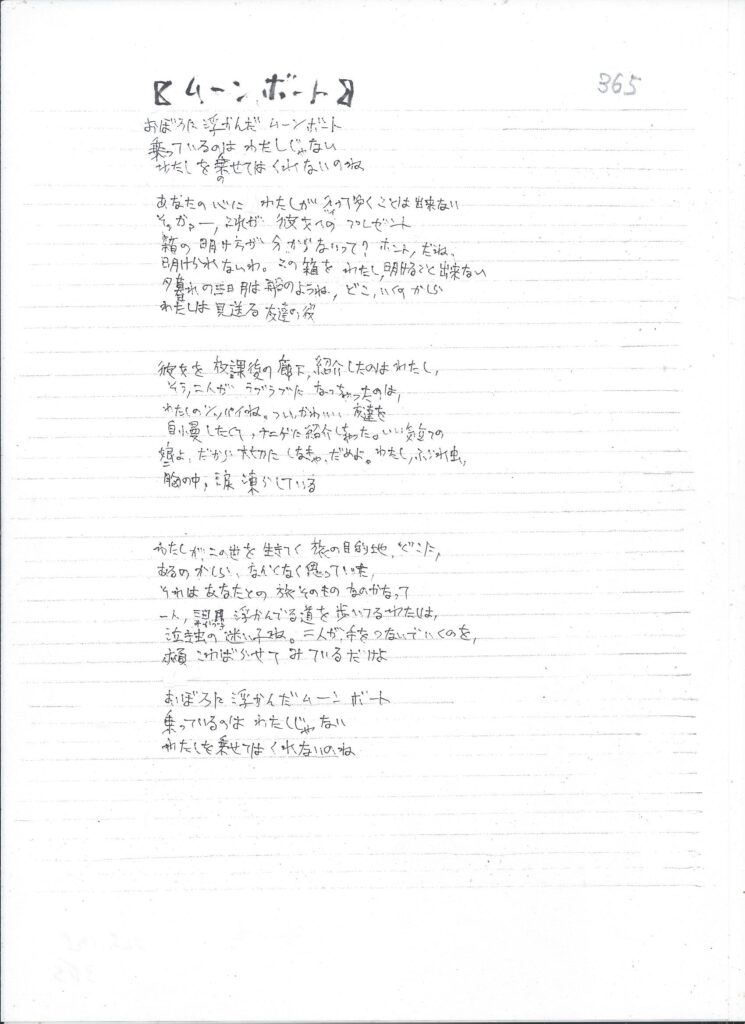 【ムーンボート】
365
おぼろに浮かんだ ムーンボート
乗っているのは わたしじゃない
わたしを乗せてはくれないのね
の
あなたの心に わたしが入って ゆくことは出来ない
そっかァー、これが 彼女への プレゼント
箱の明け方が分からないって? ホント、だね、
明けられないわ。この箱を わたし、明けること出来ない
夕暮れの三日月は船のようね、どこ、いくのかしら
わたしは見送る友達の役
彼女を放課後の廊下、紹介したのはわたし、
そう、二人が ラブラブに なっちゃったのは、
わたしのシッパイね。つい、かわいい 友達を
自慢したくて、ナニゲに紹介しちゃった。いい気立ての
娘よ、だから大切に しなきゃ、だめよ。わたし、ふられ虫、
胸の中、涙 凍らしている
わたしが、この世を 生きてく 旅の目的地、どこに、
あるのかしら、なんとなく思っていた、
それは あなたとの 旅そのもの なのかなって
一人、三日月 浮かんでる道を歩いてるわたしは、
泣き虫の迷い子ね。二人が、手をつないでいくのを、
頬 こわばらせて みているだけよ
おぼろに浮かんだムーンボート
乗っているのは わたしじゃない
わたしを乗せては くれないのね